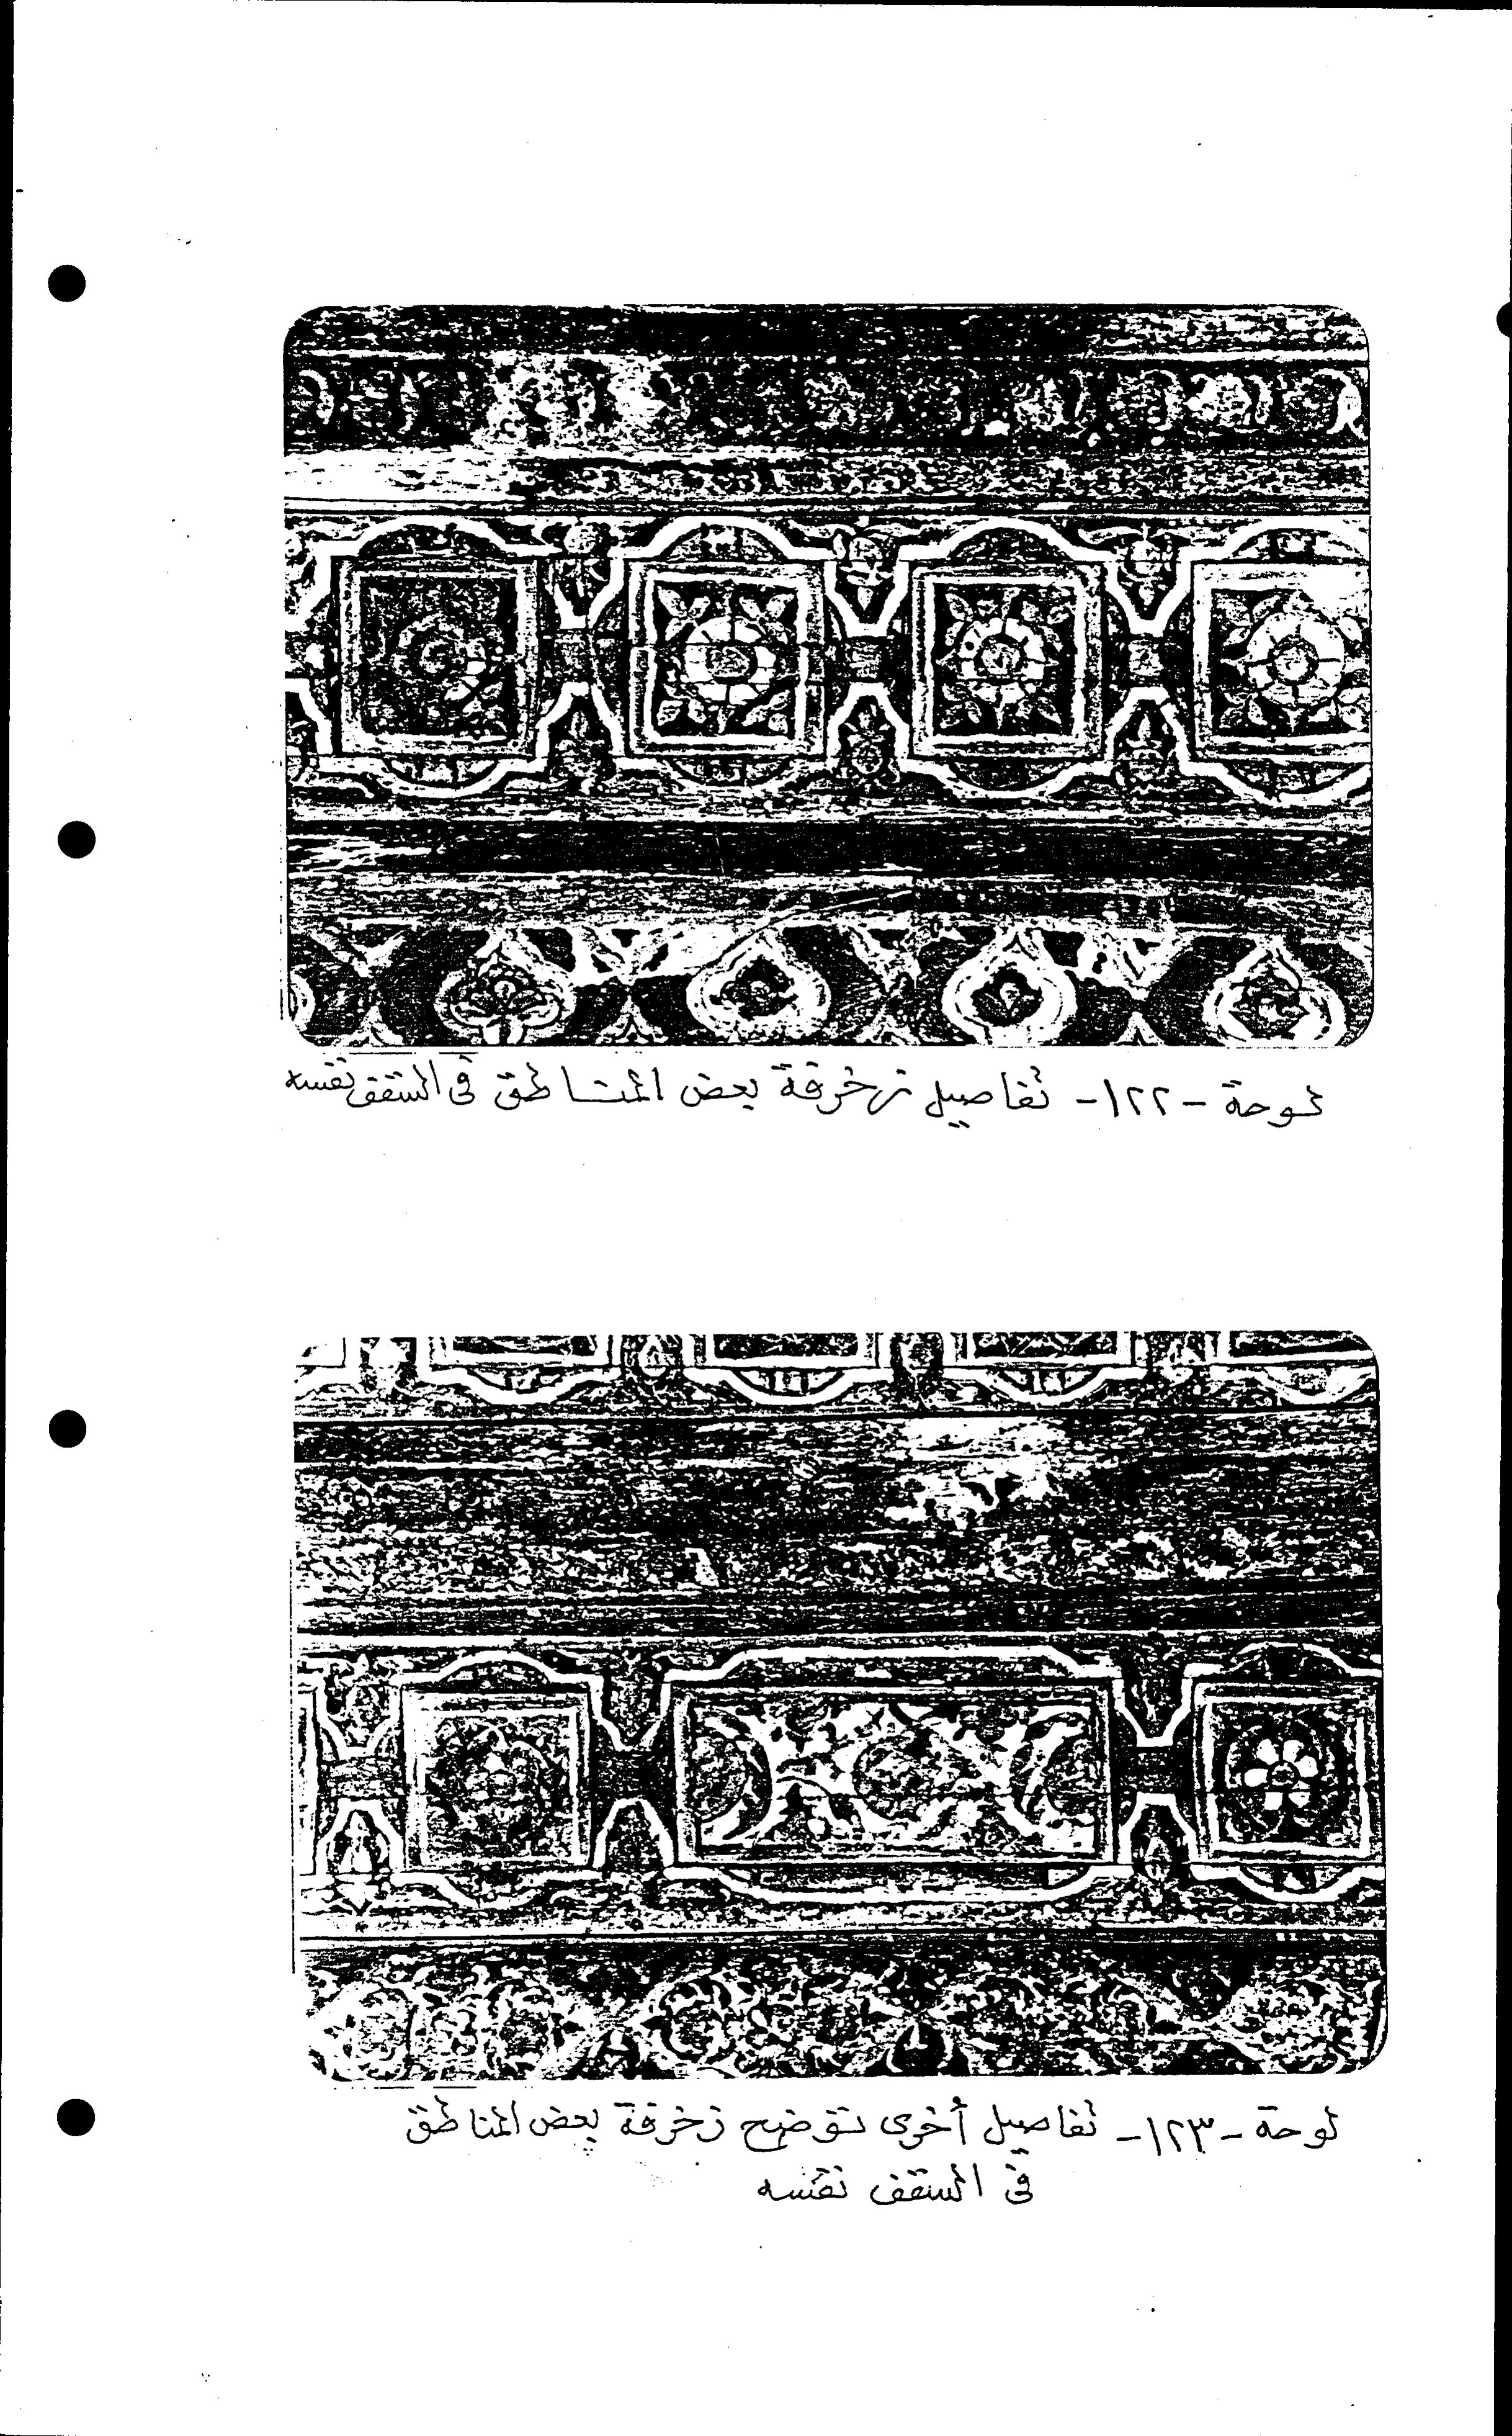 لوحة -١٢٢- تفاصيل زخرفة بعض المناطق فى السقف نفسه
لوحة -١٢٣- تفاصيل أخرى توضح زخرفة بعض المناطق
فى السقف نفسه